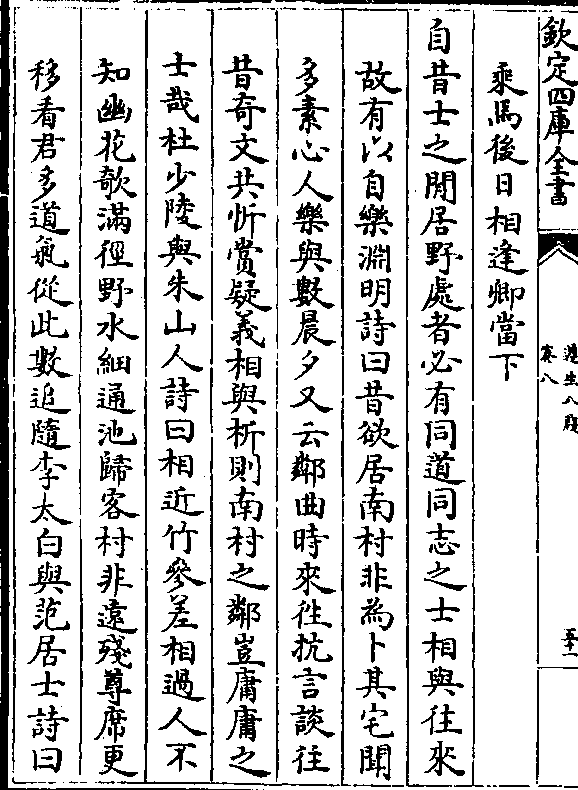 欽定四庫全書
遵生八牋
卷八
五十一
乘馬後日相逢卿當下
自昔士之閒居野處者必有同道同志之士相與往來
故有以自樂淵明詩曰昔欲居南村非為卜其宅聞
多素心人樂與數晨夕又云鄰曲時來徃抗言談往
昔奇文共忻賞疑義相與析則南村之鄰豈庸庸之
士哉杜少陵與朱山人詩曰相近竹參差相過人不
知幽花欹滿徑野水細通池歸客村非遠殘尊席更
移看君多道氣從此數追隨李太白與范居士詩曰